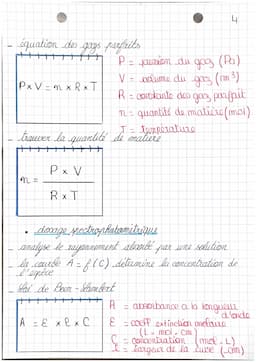 4
_ équation des gaz parfaits
P x V = n x R x T
P = pression du gaz (Pa)
V = volume du gaz (m³)
R = constante des gaz parfait
n = quantité de matière (mol)
T = Température
_ trouver la quantité de matière
n = P x V / R x T
• dosage spectrophotométrique
_ analyse le rayonnement absorbé par une solution
_ la courbe A = f(C) détermine la concentration de
l'espèce
_ Loi de Beer-Lambert
A = E x l x C
A = absorbance a la longueur
d'onde
E = coeff extinction molaire
(L - mol - cm)
C = concentration (mol - L)
l = largeur de la cuve (cm)